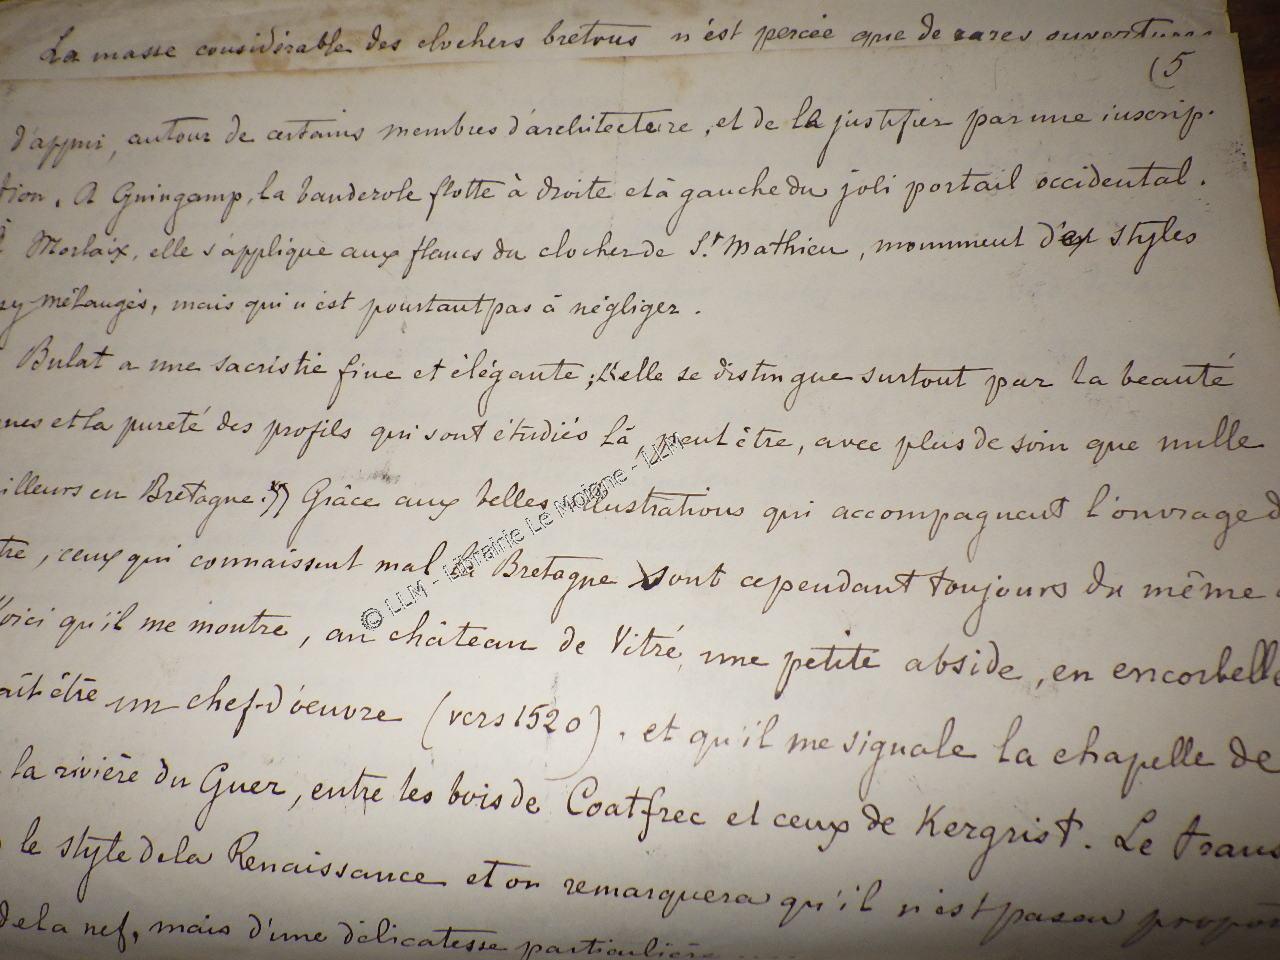 La masse considérable des clochers bretons n'est percée que de rares ouvertures
(5
d'appui, autour de certains membres d'architecture, et de la justifier par une inscrip-
tion. A Guingamp, la banderole flotte à droite et à gauche du joli portail occidental.
Morlaix, elle s'applique aux flancs du clocher de St Mathieu, monument de styles
mélangés, mais qui n'est pourtant pas à négliger.
Bulat a une sacristie fine et élégante; elle se distingue surtout par la beauté
et la pureté des profils qui sont étudiés là, peut être, avec plus de soin que nulle
ailleurs en Bretagne." Grâce aux belles illustrations qui accompagnent l'ouvrage d
tre, ceux qui connaissent mal la Bretagne sont cependant toujours du même
Voici qu'il me montre, au château de Vitré, une petite abside, en encorbelle
ait être un chef-d'oeuvre (vers 1520), et qu'il me signale la chapelle de
la rivière du Guer, entre les bois de Coatfrec et ceux de Kergrist. Le trans
le style de la Renaissance et on remarquera qu'il n'est pas en propor
de la nef, mais d'une délicatesse particulière
© LLM - Librairie Le Moigne - LLM